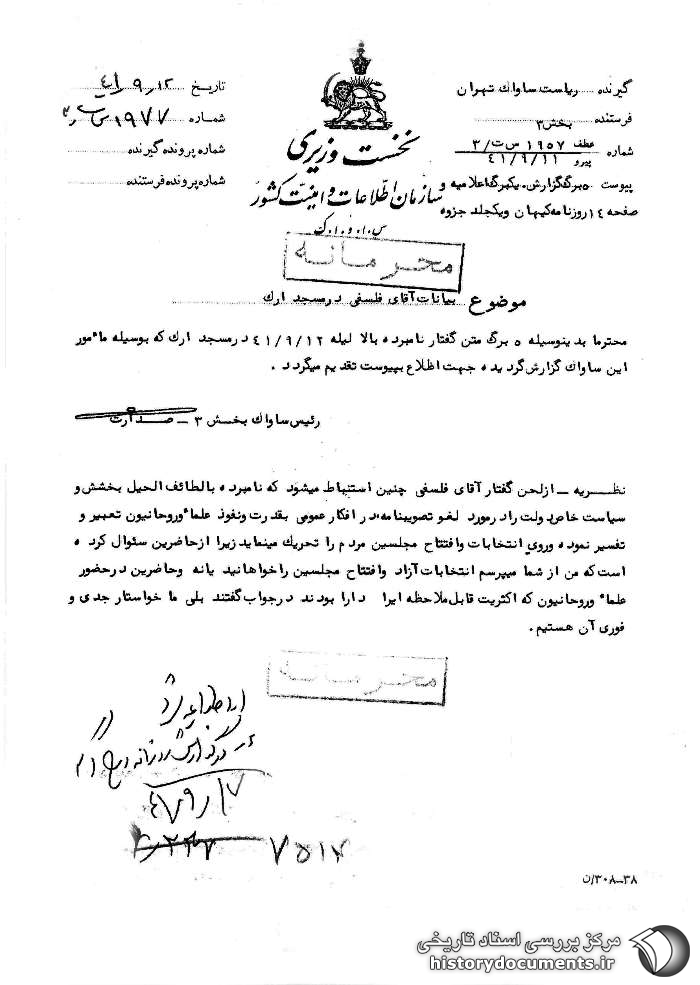 گیرنده ریاست ساواك تهران
فرستنده بخش ۳
شماره عطف ۱۹۵۷ س ت/۳
پیرو ۴۱/۹/۱۱
پیوست ۵ برگ گزارش، یکبرگ اعلامیه و
صفحه ۱۴ روزنامه کیهان ویکجلد جزوه
نخست وزیری
سازمان اطلاعات و امنیت کشور
س.ا.و.ا.ک
تاریخ ۴۱/۹/۱۲
شماره ۱۹۷۷
شماره پرونده گیرنده
شماره پرونده فرستنده
محرمانه
موضوع بیانات آقای فلسفی در مسجد ارك
محترما بدینوسیله ۵ برگ متن گفتار نامبرده بالا لیله ۴۱/۹/۱۲ در مسجد ارك که بوسیله مأمور
این ساواك گزارش گردیده جهت اطلاع بپیوست تقدیم میگردد.
رئیس ساواك بخش ۳ ــ صدارت
نظریه ــ از لحن گفتار آقای فلسفی چنین استنباط میشود که نامبرده با لطائف الحیل بخشش و
سیاست خاص دولت را در مورد لغو تصویبنامه در افکار عمومی بقدرت ونفوذ علماء وروحانیون تعبیر و
تفسیر نموده وروی انتخابات وافتتاح مجلسین مردم را تحریك مینماید زیرا از حاضرین سئوال کرده
است که من از شما میپرسم انتخابات آزاد وافتتاح مجلسین را خواهانید یانه وحاضرین در حضور
علماء وروحانیون که اکثریت قابل ملاحظه ایرا دارا بودند درجواب گفتند بلی ما خواستار جدی و
فوری آن هستیم.
محرمانه
۷۵۱۲
۳۸ــ۳۰۸/ن
مرکز بررسی اسناد تاریخی
historydocuments.ir